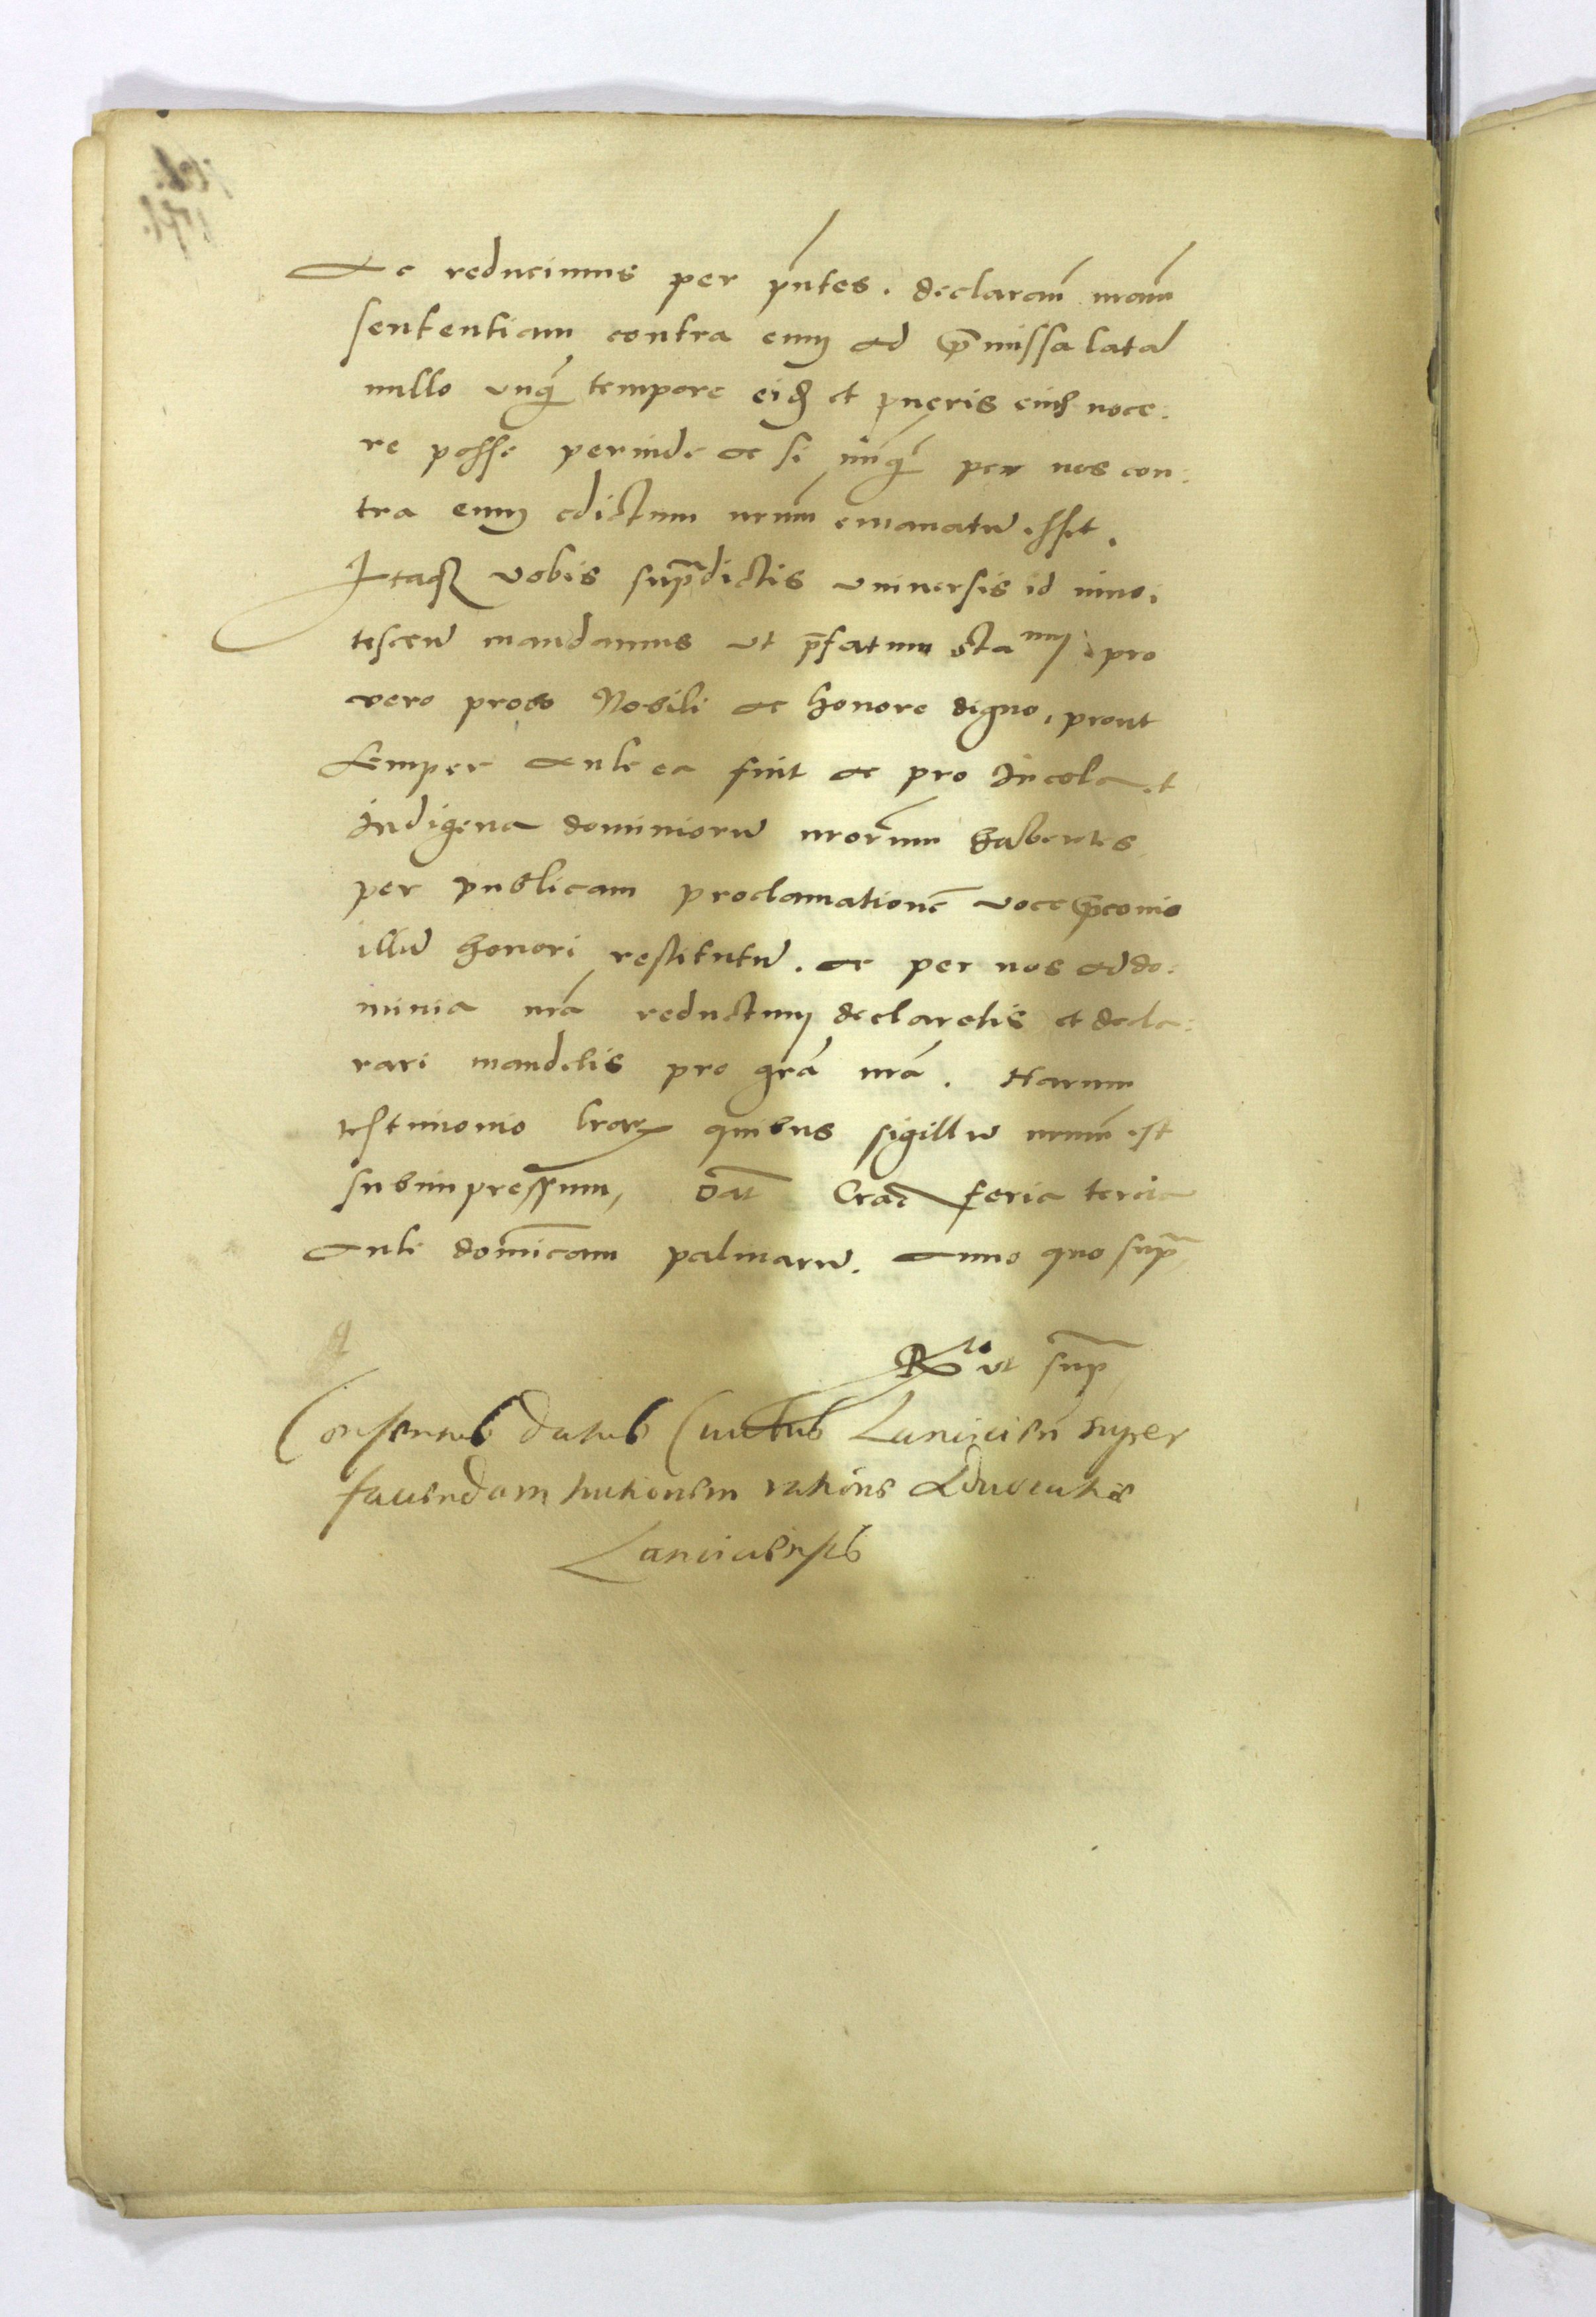 Ac reducimus per pńtes. declaram̃ nram̃
sententiam contra eum ad p̃missa latã
nullo unq̃ tempore eid̃ et pueris eius noce:
re posse perinde ac si nunq̃ per nos con:
tra eum edictum nrum̃ emanatũ esset.
Itaq₃ vobis sup̃dictis universis id inno:
tescen̄ mandamus ut p̃fatum Sta⁠ᵘᵐ pro
vero probo Nobili ac honore digno, prout
semper antea fuit ac pro Incola et
Indigena dominiorũ nrorum̃ habentes
per publicam proclamationẽ voce p̃conis
illũ honori restitutũ. ac per nos ad do:
minia nrã reductum declaretis et decla:
rari mandetis pro grã nrã. Harum
testimonio lrarꝝ quibus sigillũ nrum̃ est
subimpressum, Dat̃ Crac̃ feria tercia
ante dominicam palmarũ. Anno quo sup̃
R⁠ᵗᵒ ut sup̃
Consensus datus Civitati Lancicien̄ super
faciendam
Lanciciensis